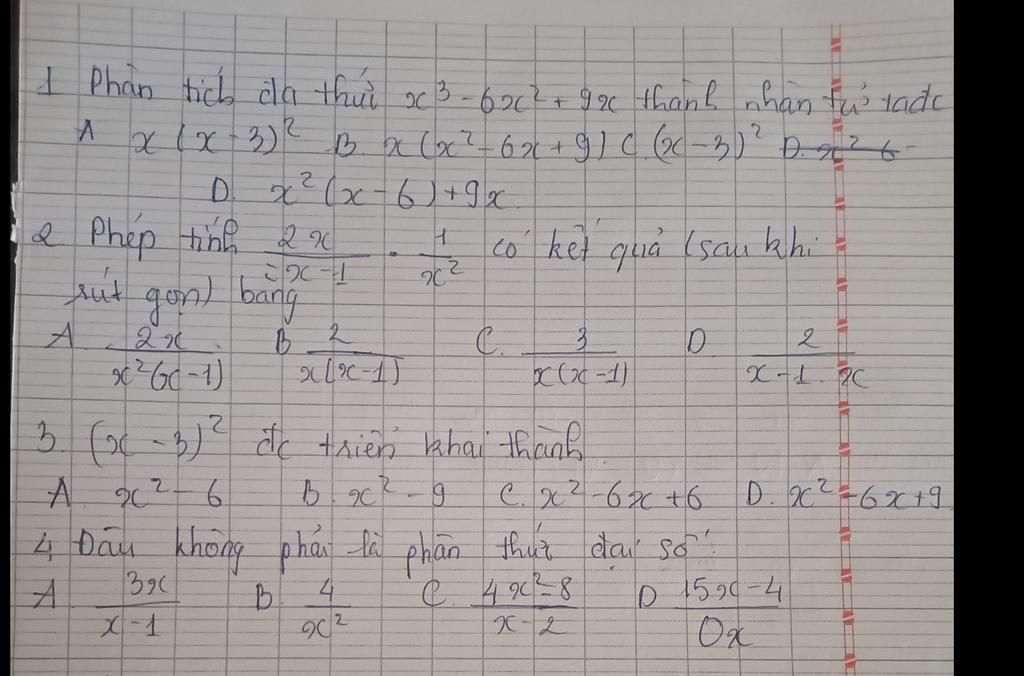 1 Phân tích đa thức x³ - 6x² + 9x thành nhân tử ta đc
A x(x - 3)² B. x(x² - 6x + 9) C. (x - 3)² D. x² 6
D. x²(x - 6) + 9x
2 Phép tính 2x/(x - 1) . 1/x² có kết quả (sau khi
rút gọn) bằng
A 2x/(x²(x - 1)) B 2/(x(x - 1)) C. 3/(x(x - 1)) D. 2/(x - 1 . x)
3 (x - 3)² đc triển khai thành
A x² - 6 B. x² - 9 C. x² - 6x + 6 D. x² - 6x + 9
4, Đâu không phải là phân thức đại số
A 3x/(x - 1) B. 4/x² C. (4x² - 8)/(x - 2) D (15x - 4)/(0x)